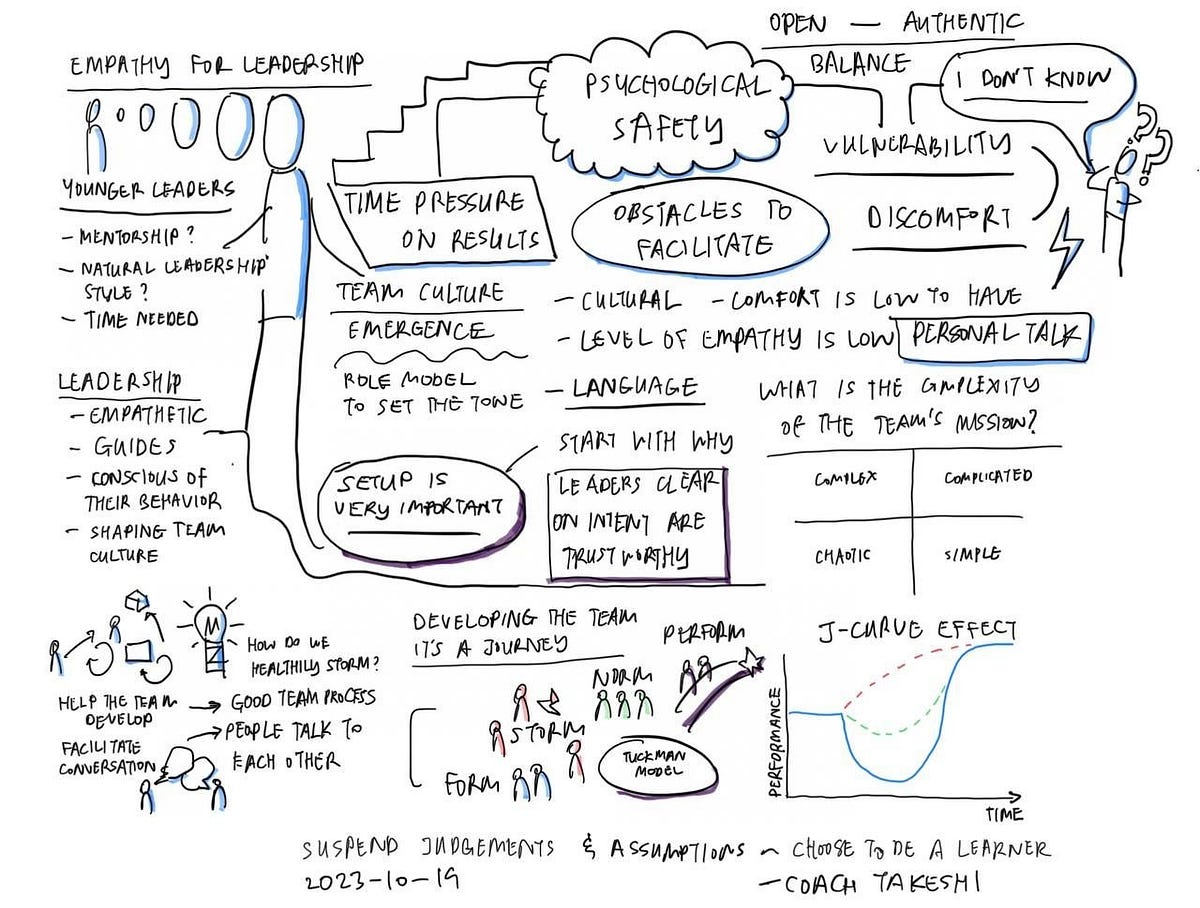 EMPATHY FOR LEADERSHIP
YOUNGER LEADERS
- MENTORSHIP?
- NATURAL LEADERSHIP
STYLE?
- TIME NEEDED
LEADERSHIP
- EMPATHETIC
- GUIDES
- CONSCIOUS OF
THEIR BEHAVIOR
- SHAPING TEAM
CULTURE
PSYCHOLOGICAL
SAFETY
OPEN — AUTHENTIC
BALANCE
I DON'T KNOW
???
VULNERABILITY
DISCOMFORT
TIME PRESSURE
ON RESULTS
OBSTACLES TO
FACILITATE
TEAM CULTURE
EMERGENCE
ROLE MODEL
TO SET THE TONE
- CULTURAL - COMFORT IS LOW TO HAVE
- LEVEL OF EMPATHY IS LOW PERSONAL TALK
- LANGUAGE
START WITH WHY
SETUP IS
VERY IMPORTANT
LEADERS CLEAR
ON INTENT ARE
TRUST WORTHY
WHAT IS THE COMPLEXITY
OF THE TEAM'S MISSION?
COMPLEX
COMPLICATED
CHAOTIC
SIMPLE
HOW DO WE
HEALTHILY STORM?
HELP THE TEAM
DEVELOP
GOOD TEAM PROCESS
PEOPLE TALK TO
EACH OTHER
FACILITATE
CONVERSATION
DEVELOPING THE TEAM
IT'S A JOURNEY
PERFORM
NORM
STORM
FORM
TUCKMAN
MODEL
J-CURVE EFFECT
PERFORMANCE
TIME
SUSPEND JUDGEMENTS & ASSUMPTIONS ~ CHOOSE TO BE A LEARNER
2023-10-19
- COACH TAKESHI